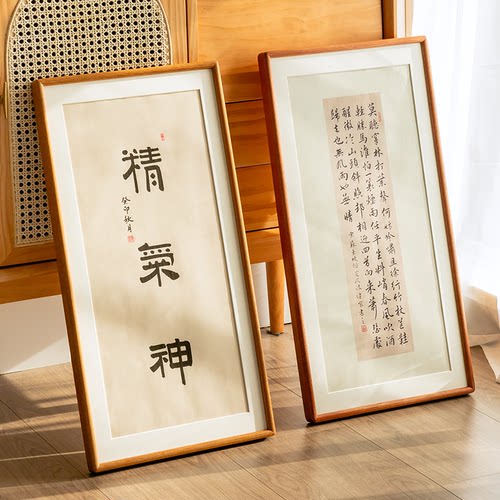 精氣神
癸卯秋月
莫聽穿林打葉聲何妨吟嘯且徐行竹杖芒鞋
輕勝馬誰怕一蓑煙雨任平生料峭春風吹酒
醒微冷山頭斜照卻相迎回首向來蕭瑟處
歸去也無風雨也無晴